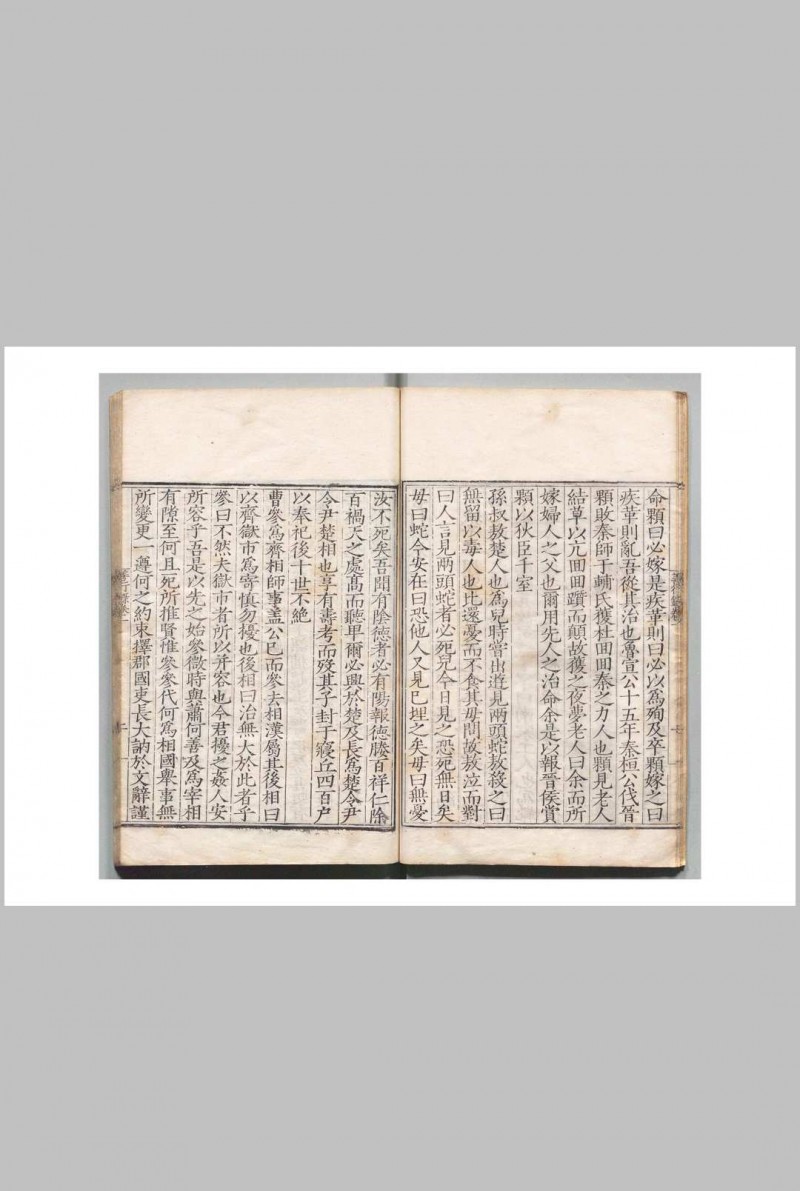 命顆曰必嫁是疾革則曰必以爲殉及卒顆嫁之曰
疾革則亂吾從其治也魯宣公十五年秦桓公伐晉
顆敗秦師于輔氏獲杜回回秦之力人也顆見老人
結草以亢回回躓而顛故獲之夜夢老人曰余而所
嫁婦人之父也爾用先人之治命余是以報晉侯賞
顆以狄臣千室
孫叔敖楚人也爲兒時嘗出遊見兩頭蛇敖殺之曰
無留以毒人也比還憂而不食其毋問故敖泣而對
曰人言見兩頭蛇者必死兒今日見之恐死無日矣
毋曰蛇今安在曰恐他人又見已埋之矣毋曰無憂
汝不死矣吾聞有陰德者必有陽報德勝百祥仁除
百禍天之處髙而聽卑爾必興於楚及長爲楚令尹
令尹楚相也享有壽考而殁其子封于寢丘四百户
以奉祀後十世不絶
曹參爲齊相師事盖公已而參去相漢屬其後相曰
以齊獄市爲寄慎勿擾也後相曰治無大於此者乎
參曰不然夫獄市者所以并容也今君擾之姦人安
所容乎吾是以先之始參微時與蕭何善及爲宰相
有隙至何且死所推賢惟參參代何爲相國舉事無
所變更一遵何之約束擇郡國吏長大訥於文辭謹